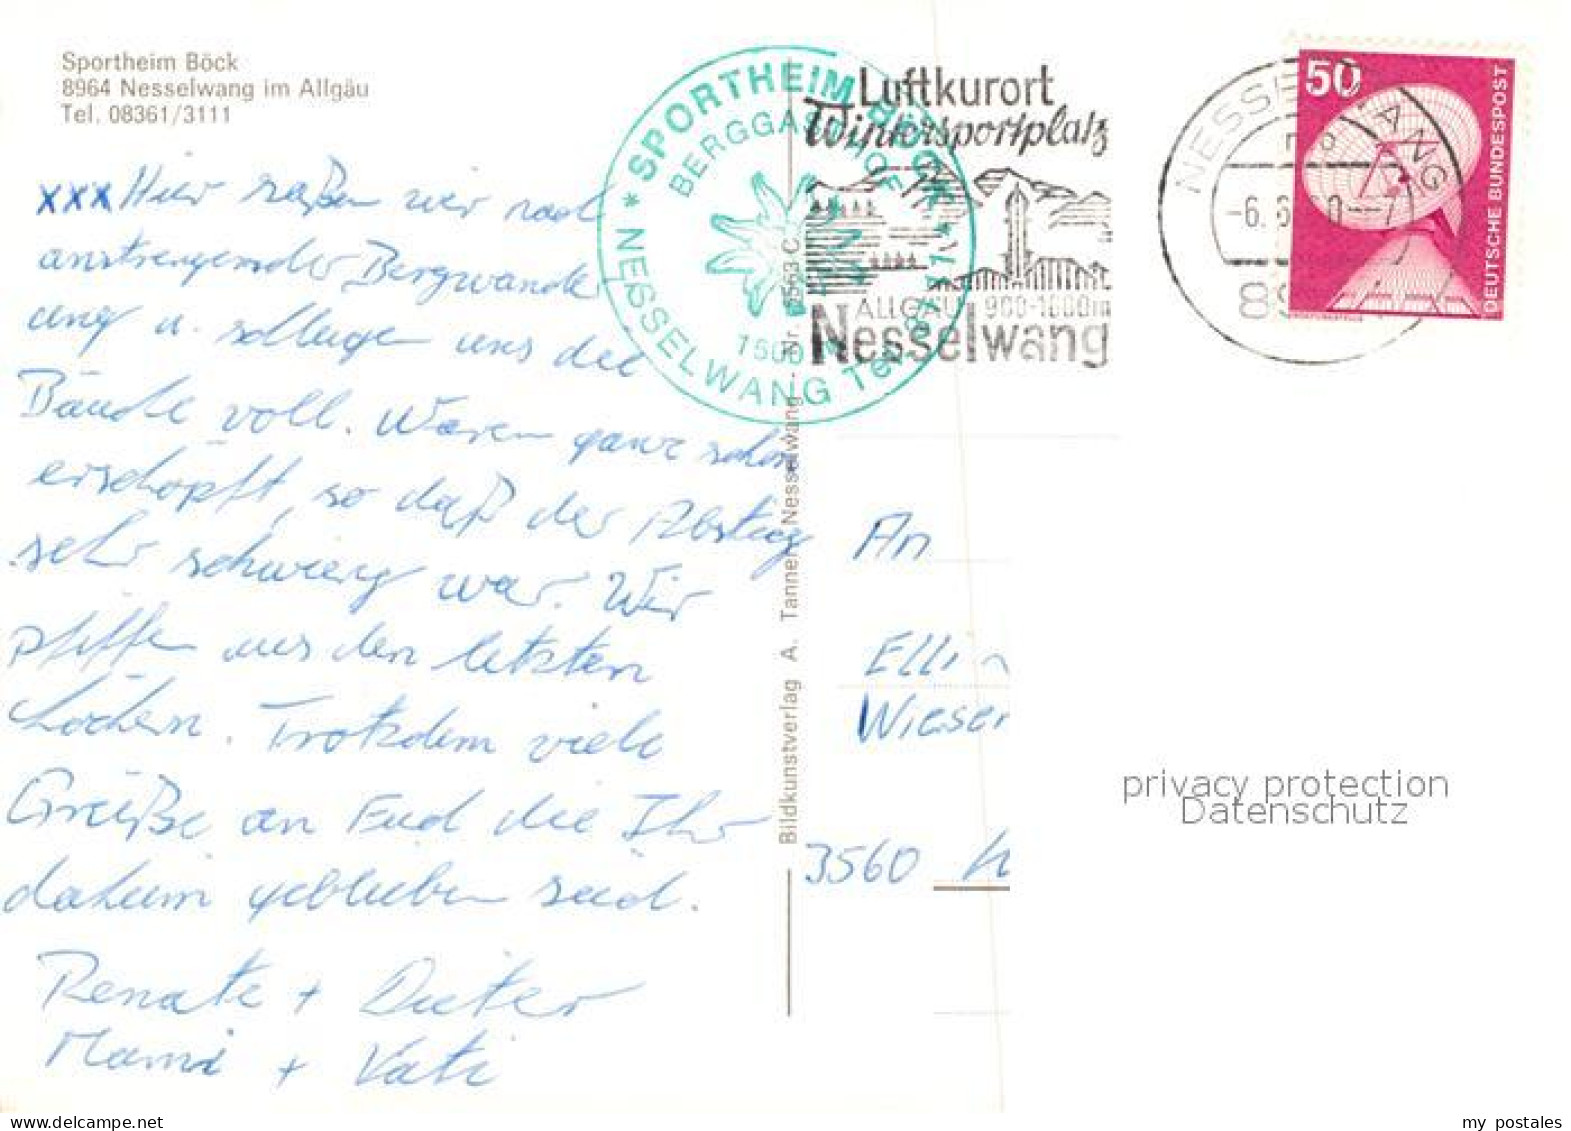 Sportheim Böck
8964 Nesselwang im Allgäu
Tel. 08361/3111
* SPORTHEIM BÖCK *
BERGGASTHOF
1500
NESSELWANG Tel.
Luftkurort
Wintersportplatz
ALLGÄU 900-1600m
Nesselwang
NESSELWANG
-6.6.
89
50
DEUTSCHE BUNDESPOST
xxx Hier saßen wir nach
anstrengender Bergwander
ung u. schlugen uns die
Bäuche voll. Waren ganz schön
erschöpft, so daß der Abstieg
sehr schwierig war. Wir
pfiffen aus den letzten
Löchern. Trotzdem viele
Grüße an Euch die Ihr
daheim geblieben seid.
Renate + Dieter
Mami + Vati
Bildkunstverlag A. Tanner Nesselwang - Nr.
An
Elli
Wieser
3560
privacy protection
Datenschutz
my postales